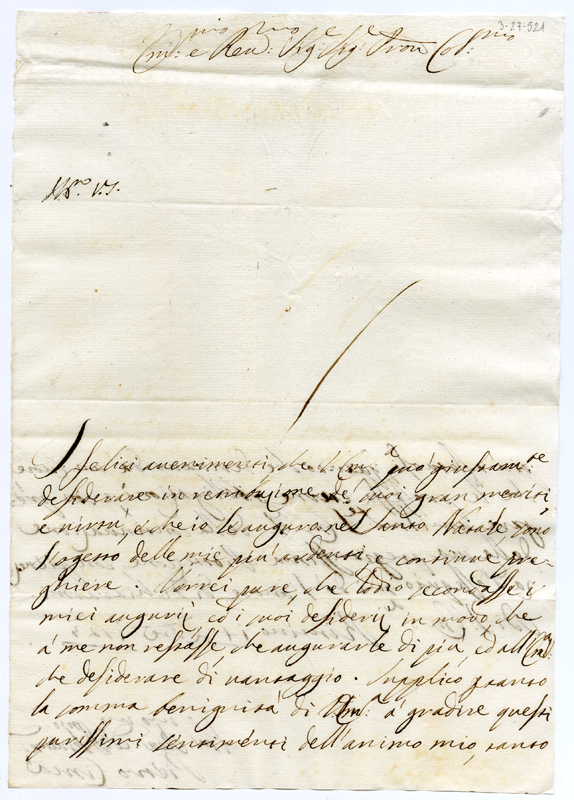 3-27-521
Em:mo e Reu:mo Sig:e Sig:e Pron Col:mo
I felici auenimenti che può giustam:te
desiderare in retribuzione de' suoi gran meriti
e virtù, e che io le auguro nel Santo Natale sono
l'ogetto delle mie più ardenti, e continue pre-
ghiere. Vorrei pure, che Iddio secondasse i
miei augurij, ed i suoi desiderij in modo, che
à me non restasse che augurarle di più, ed all'Em:
che desiderare di vantaggio. Supplico frantto
la somma benignità di à gradire questi
purissimi sentimenti dell'animo mio, tanto